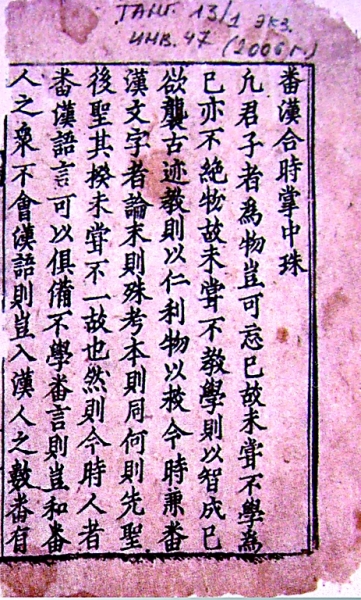 ТАНГ. 13/1 экз.
инв. 47 (2006 г.)
番漢合時掌中珠
凡君子者為物豈可忘己故未甞不學為
己亦不絕物故未甞不教學則以智成己
欲襲古迹教則以仁利物以救今時兼番
漢文字者論末則殊考本則同何則先聖
後聖其揆未甞不一故也然則今時人者
番漢語言可以俱備不學番言則豈和番
人之衆不會漢語則豈入漢人之數番有